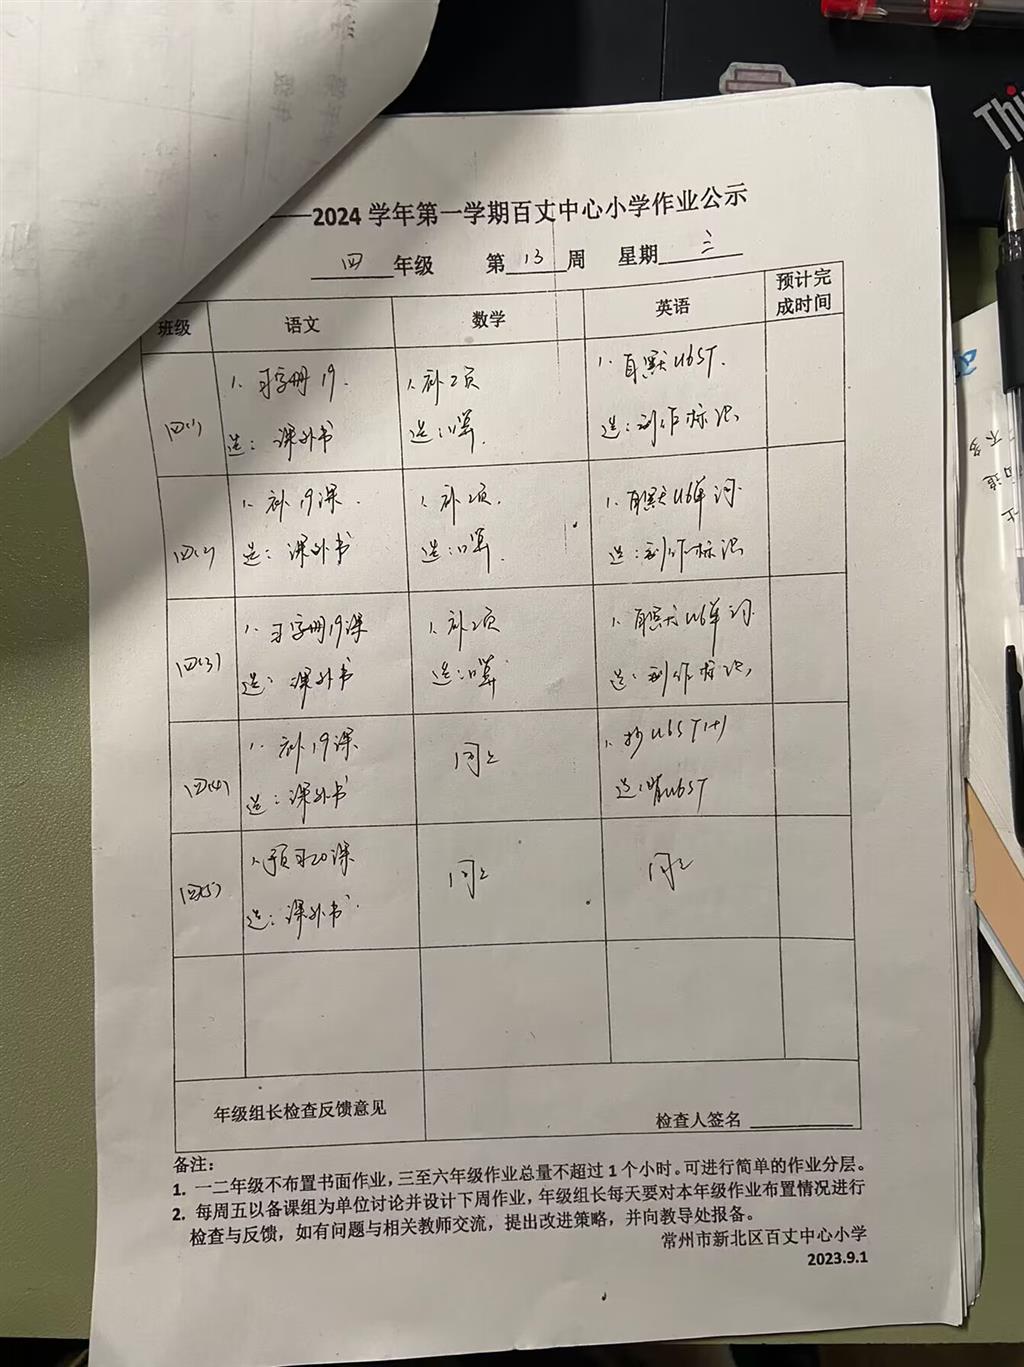 ——2024 学年第一学期百丈中心小学作业公示
四 年级 第 13 周 星期 三
班级 语文 数学 英语 预计完成时间
四(1)
1. 习字册 19.
选: 课外书
1. 补2页
选: 口算.
1. 自默U6ST.
选: 制作标识
四(2)
1. 补 19课.
选: 课外书
1. 补2页.
选: 口算.
1. 自默U6单词
选: 制作标识
四(3)
1. 习字册19课
选: 课外书
1. 补2页
选: 口算
1. 自默U6单词
选: 制作标识
四(4)
1. 补19课
选: 课外书
同上
1. 抄U6ST1+1
选: 背U6ST
四(5)
1. 预习20课
选: 课外书
同上
同上
年级组长检查反馈意见
检查人签名
备注:
1. 一二年级不布置书面作业，三至六年级作业总量不超过 1 个小时。可进行简单的作业分层。
2. 每周五以备课组为单位讨论并设计下周作业，年级组长每天要对本年级作业布置情况进行
检查与反馈，如有问题与相关教师交流，提出改进策略，并向教导处报备。
常州市新北区百丈中心小学
2023.9.1
Thi